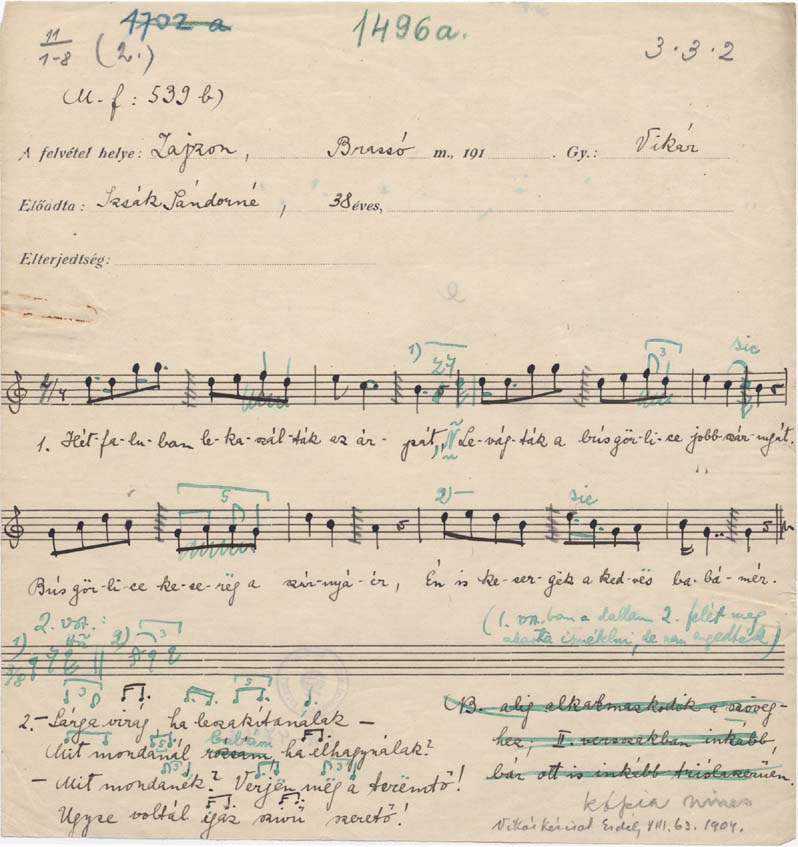 4702 a
1496a.
11/1-8 (2.)
3·3·2
M. f: 539 b)
A felvétel helye: Zajzon, Brassó m., 191 . Gy.: Vikár
Előadta: Izsák Sándorné, 38 éves,
Elterjedtség:
1) 3 sic
1. Hét-fa-lu-ban le-ka-szál-ták az ár-pát, Le-vág-ták a bús gör-li-ce jobb szár-nyát.
5 2) sic
Bús gör-li-ce ke-se-rëg a szár-nyá-ér, Én is ke-ser-gëk a ked-vës ba-bá-mér.
2. vsz.:
(1. vsz.ban a dallam 2. felét meg
akarta ismételni, de nem engedték)
1) 3/8 2) 3
2.- Sárga virág ha leszakítanálak -
Mit mondanál rózsám babám, ha elhagynálak?
- Mit mondanék? Verjën mëg a terëmtő!
Ugyse voltál igaz szivű szerető!
NB. alig alkalmazkodik a szöveg-
hez, II. versszakban inkább,
bár ott is inkább triólaszerűen.
kópia nincs
Vikár kézirat Erdély VIII. 63. 1904.